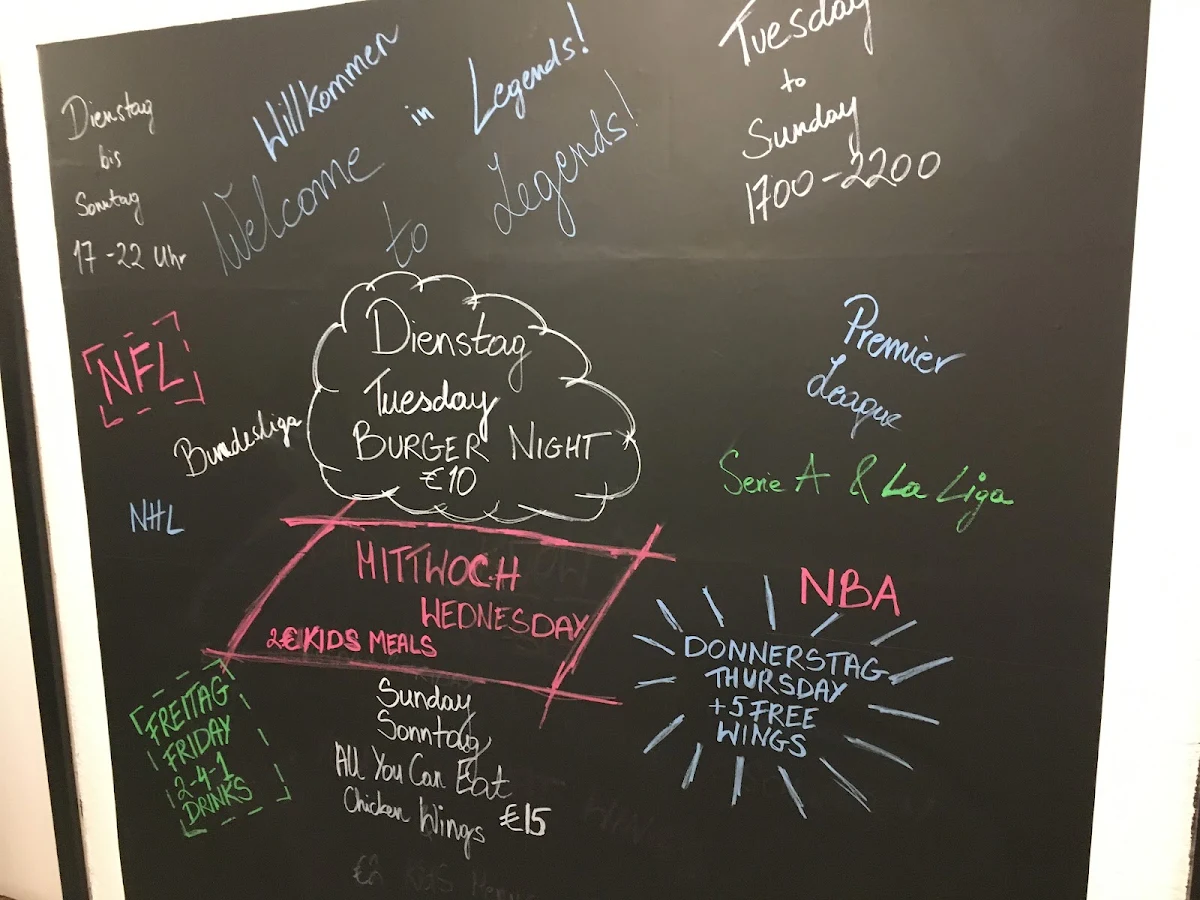 Dienstag
bis
Sonntag
17-22 Uhr
Willkommen in Legends!
Welcome to Legends!
Tuesday
to
Sunday
1700-2200
NFL
Bundesliga
NHL
Dienstag
Tuesday
BURGER NIGHT
€10
Premier
League
Serie A & La Liga
NBA
MITTWOCH
WEDNESDAY
2€ KIDS MEALS
DONNERSTAG
THURSDAY
+5 FREE
WINGS
FREITAG
FRIDAY
2-4-1
DRINKS
Sunday
Sonntag
All You Can Eat
Chicken Wings €15